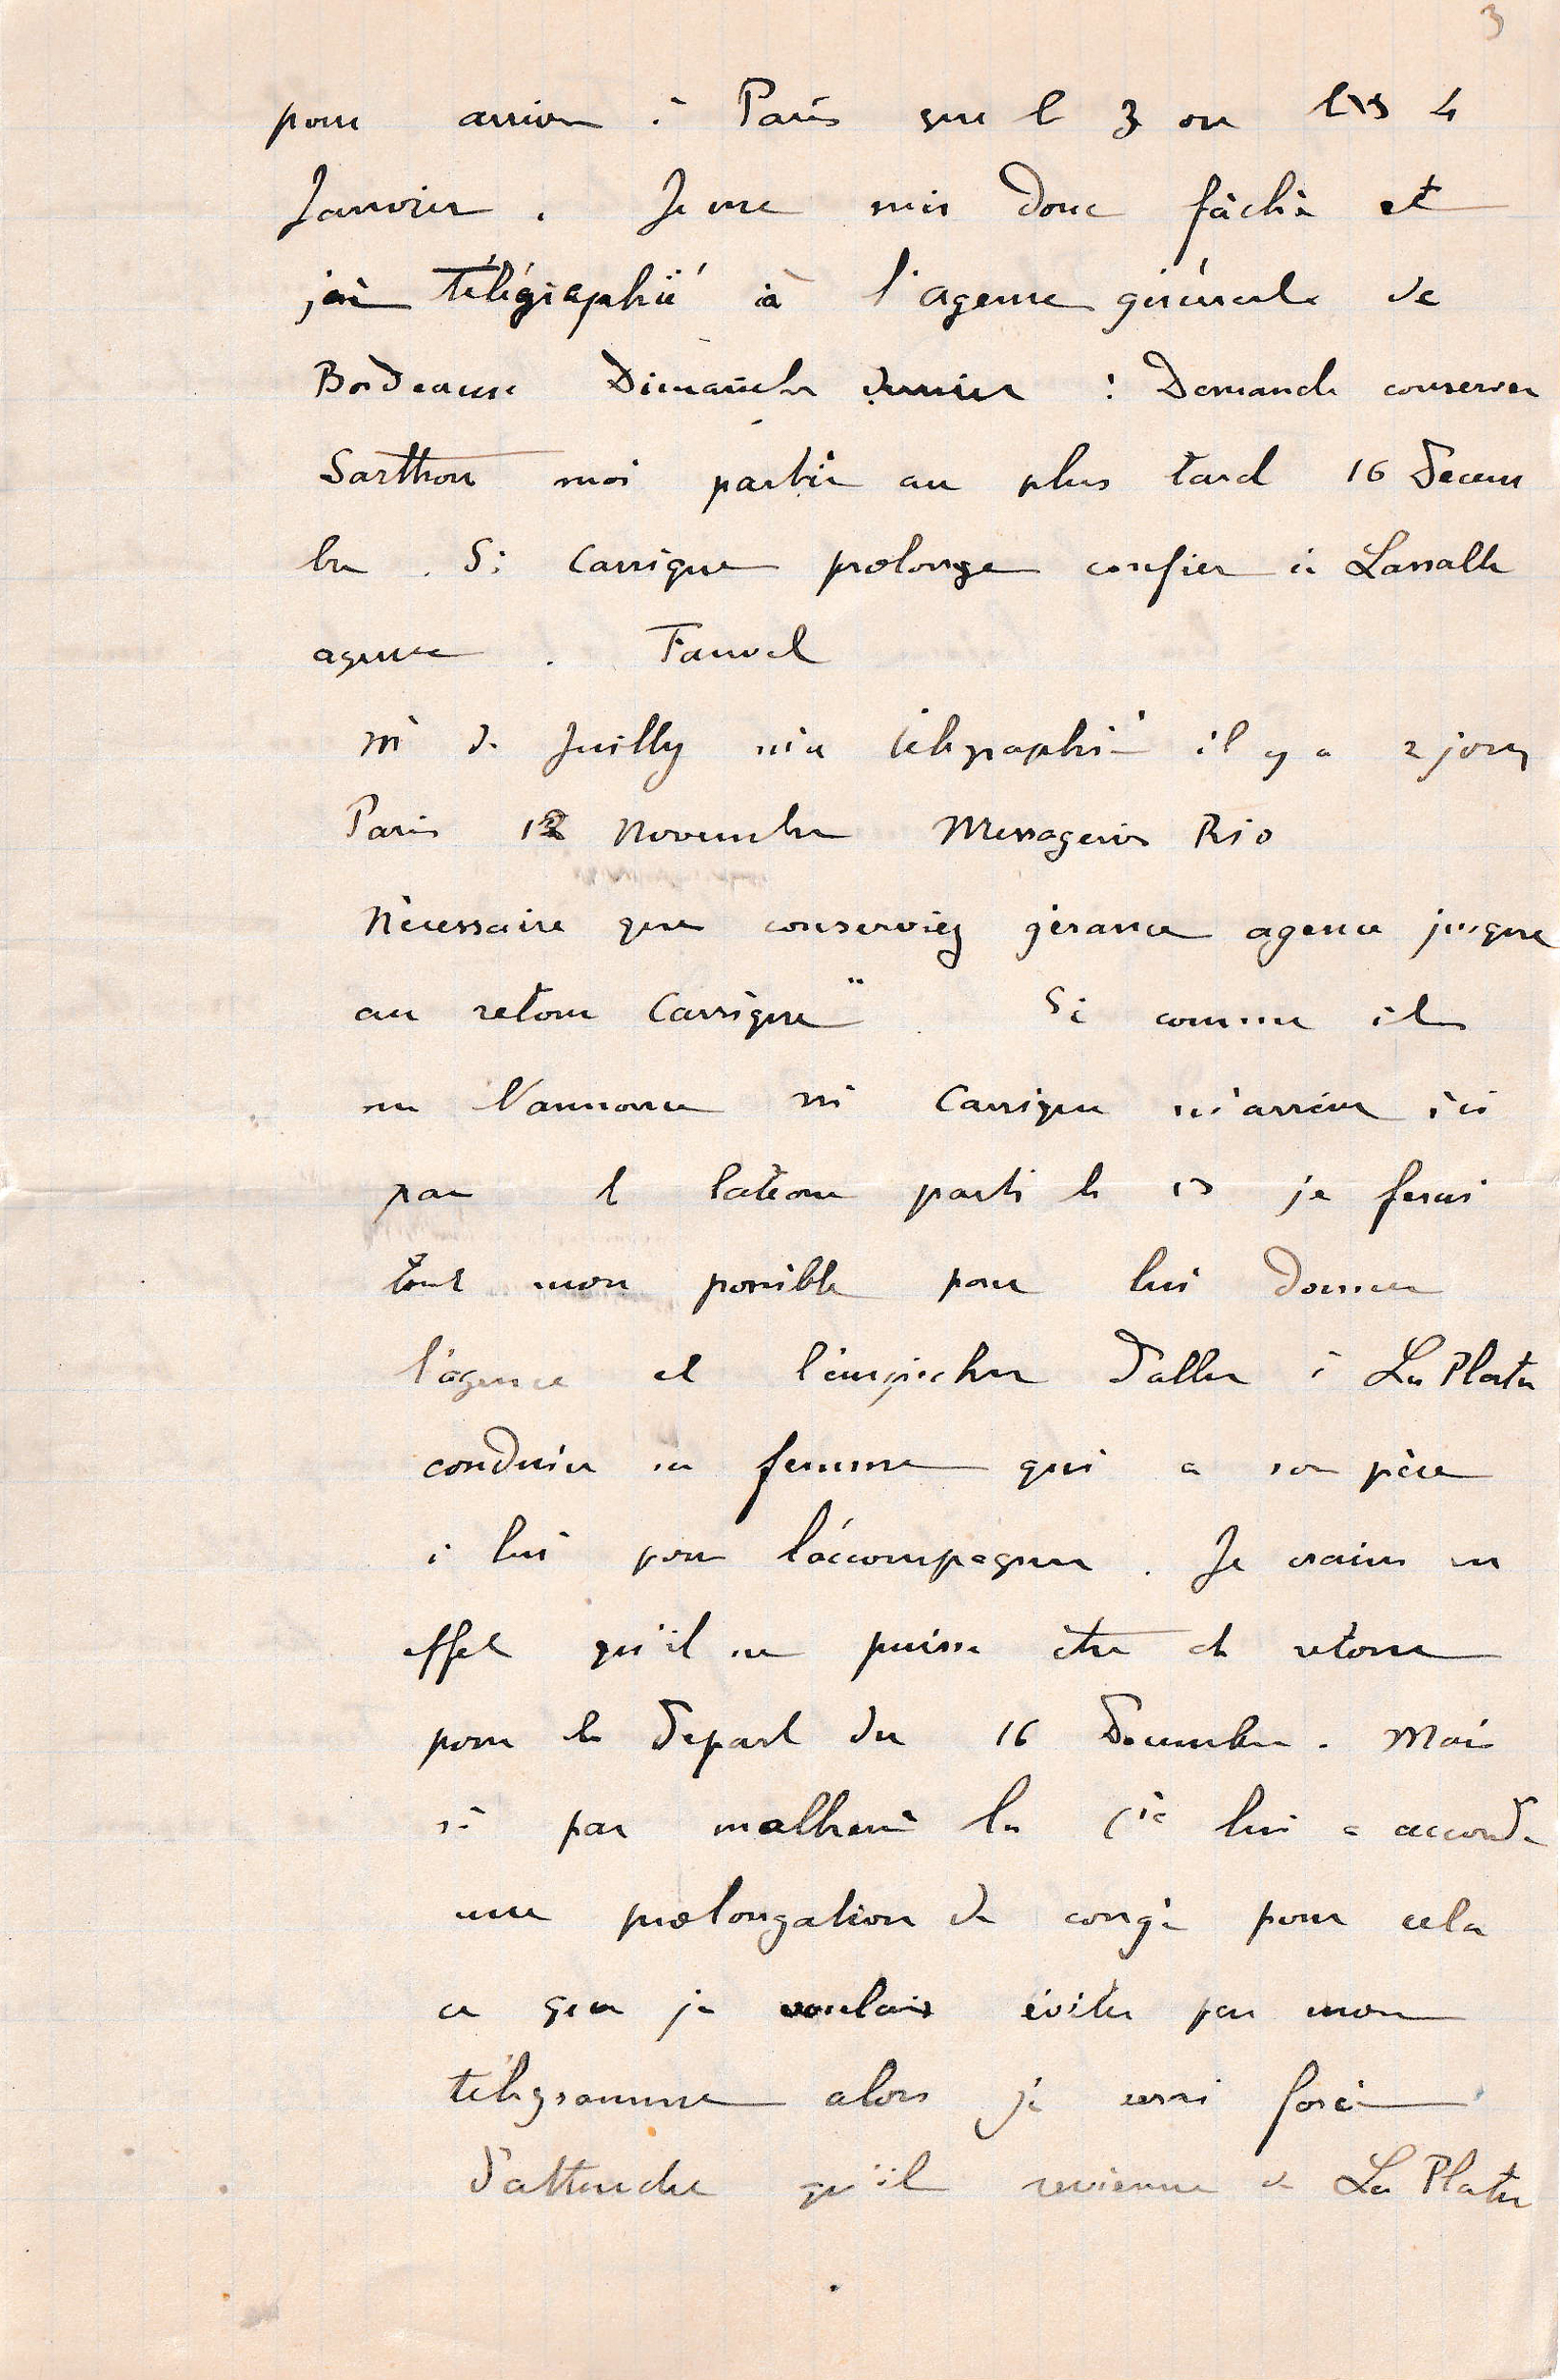 3
pour arriver à Paris que le 3 ou les 4
Janvier. Je me suis donc fâché et
j'ai télégraphié à l'agence générale de
Bordeaux Dimanche dernier : Demande conserver
Sarthou moi partir au plus tard 16 Decem
bre. Si Carrique prolonge confier à Lassalle
agence. Fauvel
Mr de Juilly m'a télégraphié il y a 2 jours
Paris 12 Novembre Messageries Rio
Nécessaire que conserviez gérance agence jusque
au retour Carrique" Si comme il
me l'annonce Mr Carrique m'arrive ici
par le bateau parti le je ferai
tout mon possible pour lui donner
l'agence et l'empêcher d'aller à La Plata
conduire sa femme qui a son père
à lui pour l'accompagner. Je crains en
effet qu'il ne puisse être de retour
pour le départ du 16 Decembre. Mais
si par malheur la Cie lui a accordé
une prolongation de congé pour cela
ce que je voulais éviter par mon
télégramme alors je serai forcé
d'attendre qu'il revienne de La Plata